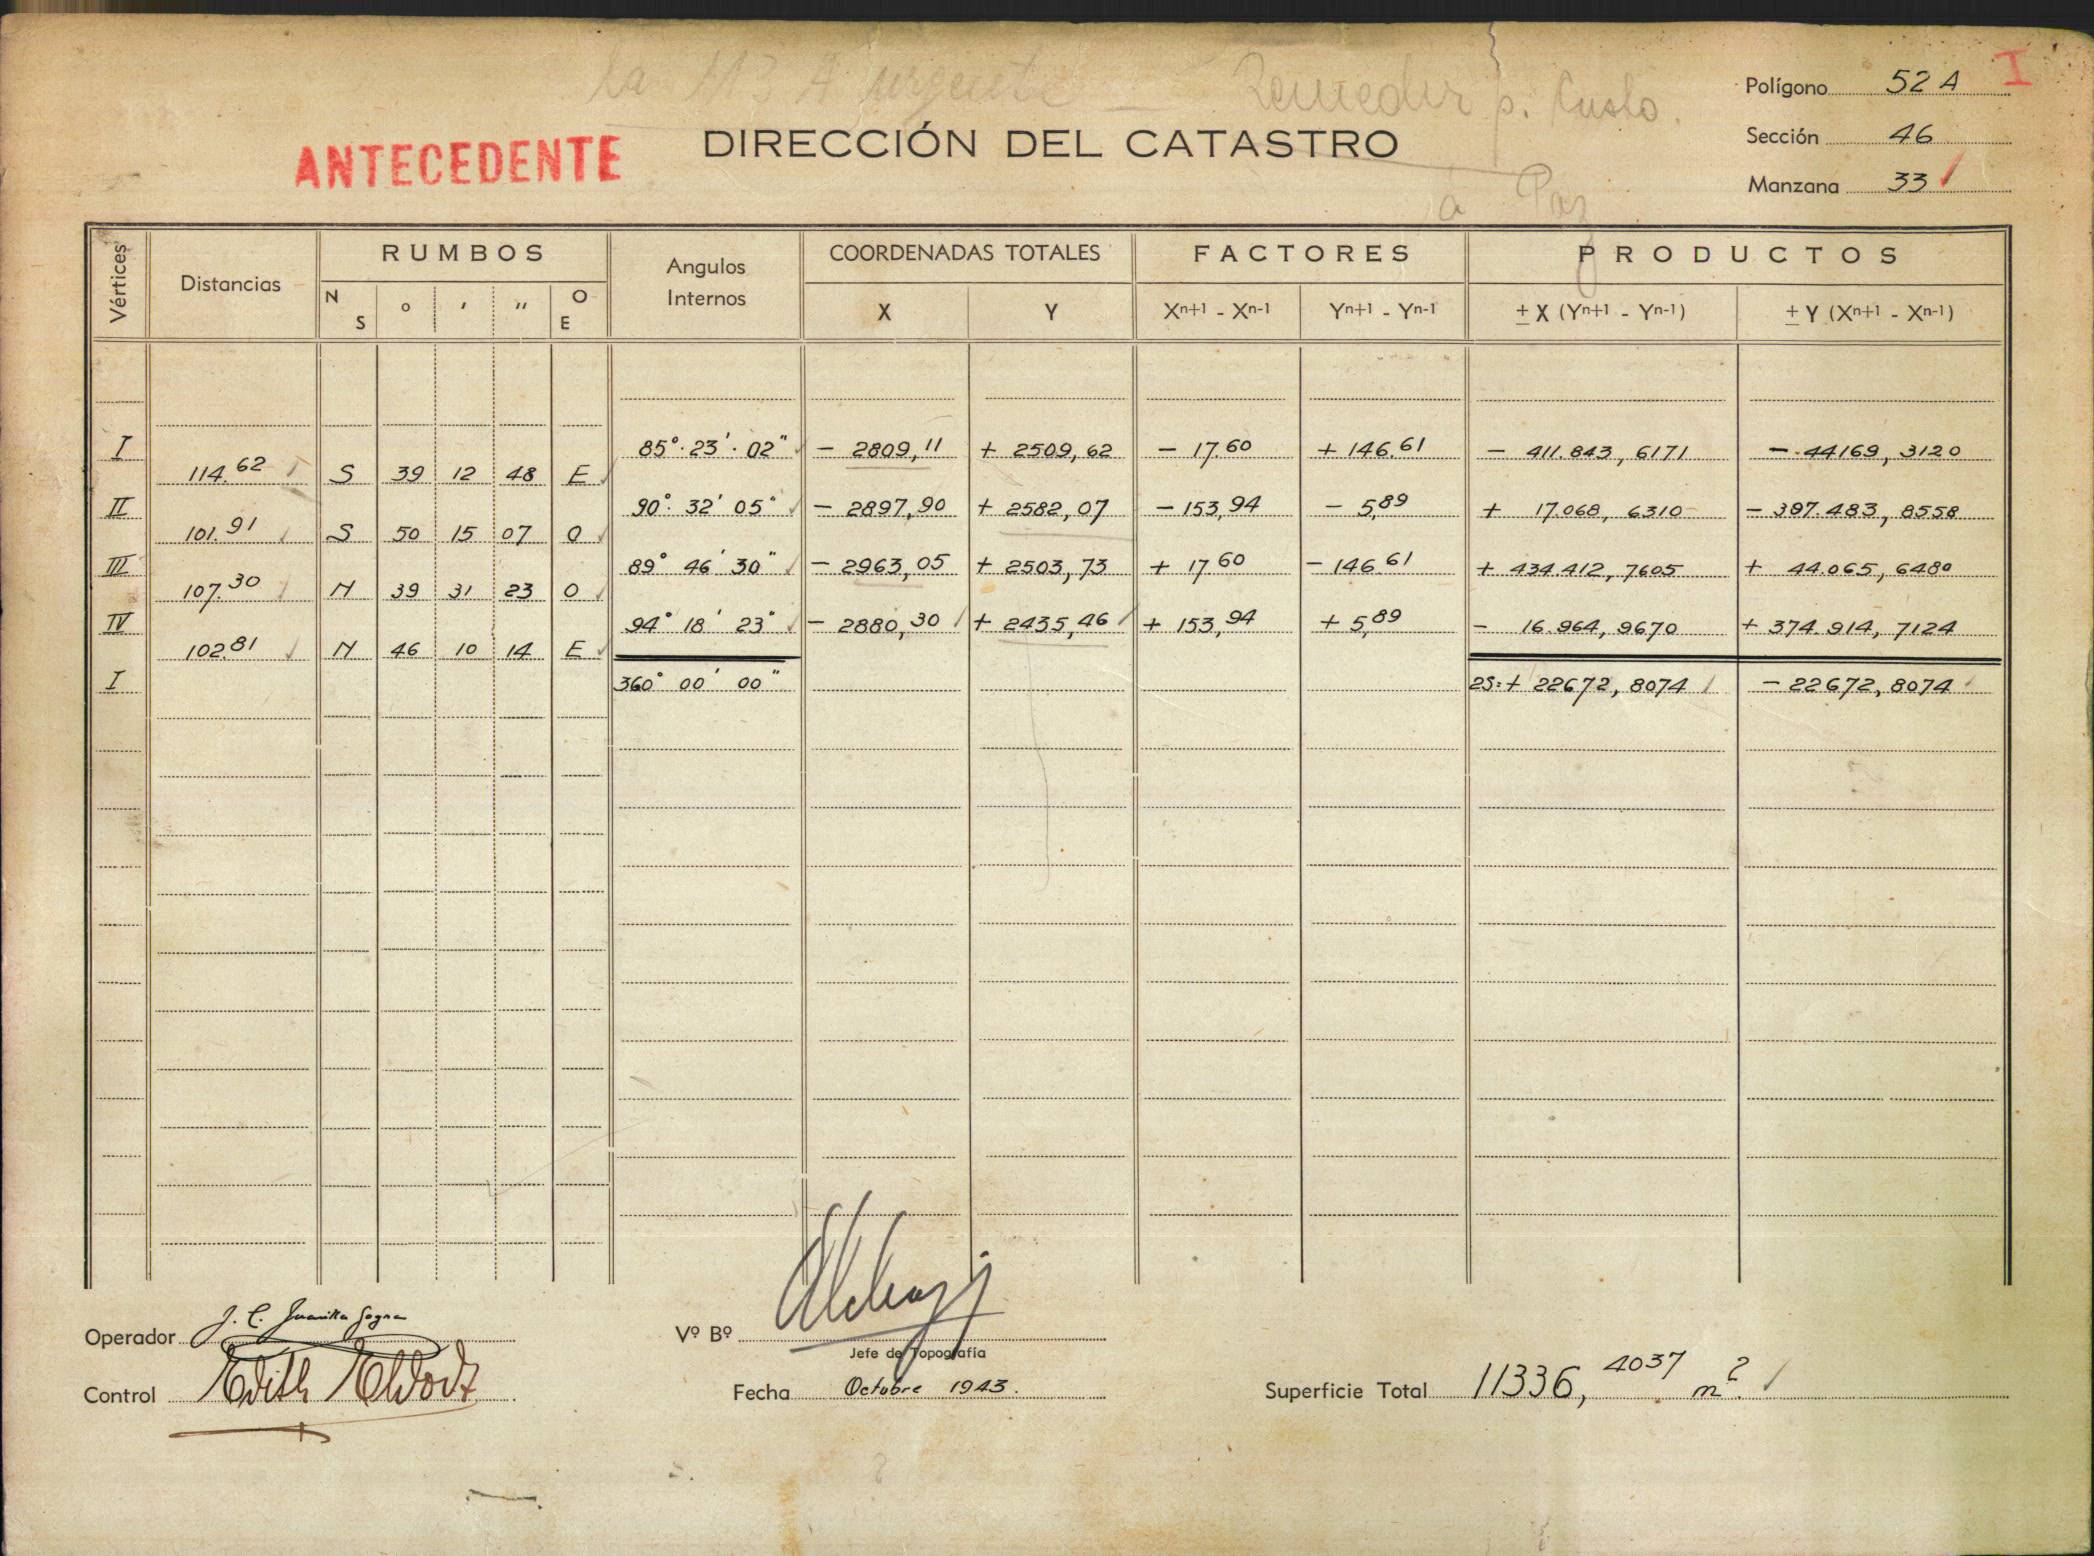 la 113 A urgente
Polígono 52 A I
ANTECEDENTE DIRECCIÓN DEL CATASTRO
Sección 46
Manzana 33
Vértices Distancias RUMBOS Angulos Internos COORDENADAS TOTALES FACTORES PRODUCTOS
N S ° ' " O E X Y Xn+1 - Xn-1 Yn+1 - Yn-1 ± X (Yn+1 - Yn-1) ± Y (Xn+1 - Xn-1)
I 85° 23' 02" - 2809,11 + 2509,62 - 17,60 + 146,61 - 411.843,6171 - 44169,3120
114,62 S 39 12 48 E
II 90° 32' 05" - 2897,90 + 2582,07 - 153,94 - 5,89 + 17.068,6310 - 397.483,8558
101,91 S 50 15 07 O
III 89° 46' 30" - 2963,05 + 2503,73 + 17,60 - 146,61 + 434.412,7605 + 44.065,6480
107,30 N 39 31 23 O
IV 94° 18' 23" - 2880,30 + 2435,46 + 153,94 + 5,89 - 16.964,9670 + 374.914,7124
102,81 N 46 10 14 E
I 360° 00' 00" 2S=+ 22672,8074 - 22672,8074
Operador
Vº Bº
Jefe de Topografía
Control Edith
Fecha Octubre 1943.
Superficie Total 11336,4037 m2.